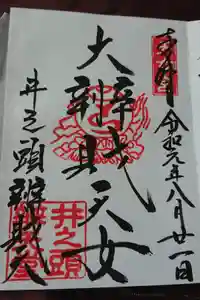 奉拝 令和元年八月廿一日
大辨財天女
井之頭辨財天
井之頭